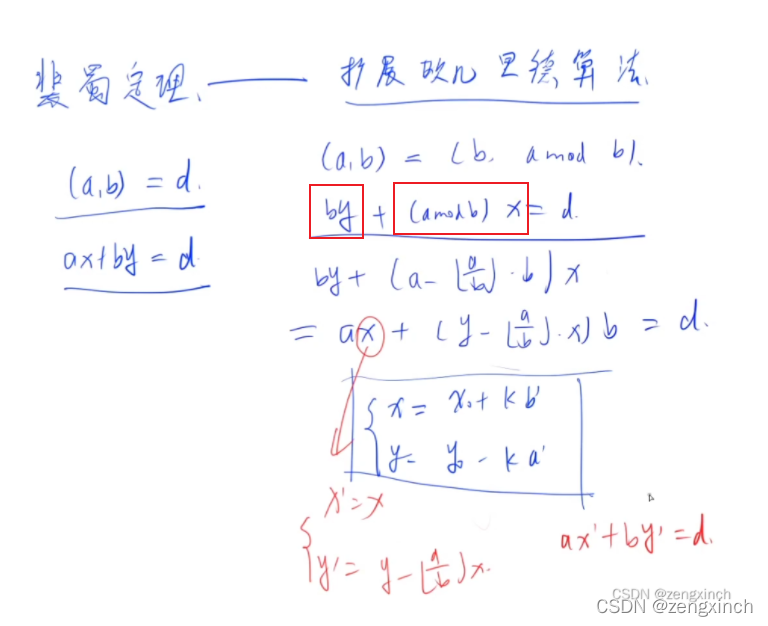 裴蜀定理、—— 扩展欧几里德算法
(a,b) = d.
ax+by = d.
(a,b) = (b, a mod b).
by + (a mod b) x = d.
by + (a - ⌊a/b⌋·b) x
= ax + (y - ⌊a/b⌋·x) b = d.
{ x = x₀ + k b'
y = y₀ - k a'
{ x' = x
y' = y - ⌊a/b⌋x.
ax' + by' = d.
CSDN @zengxinch
CSDN @zengxinch